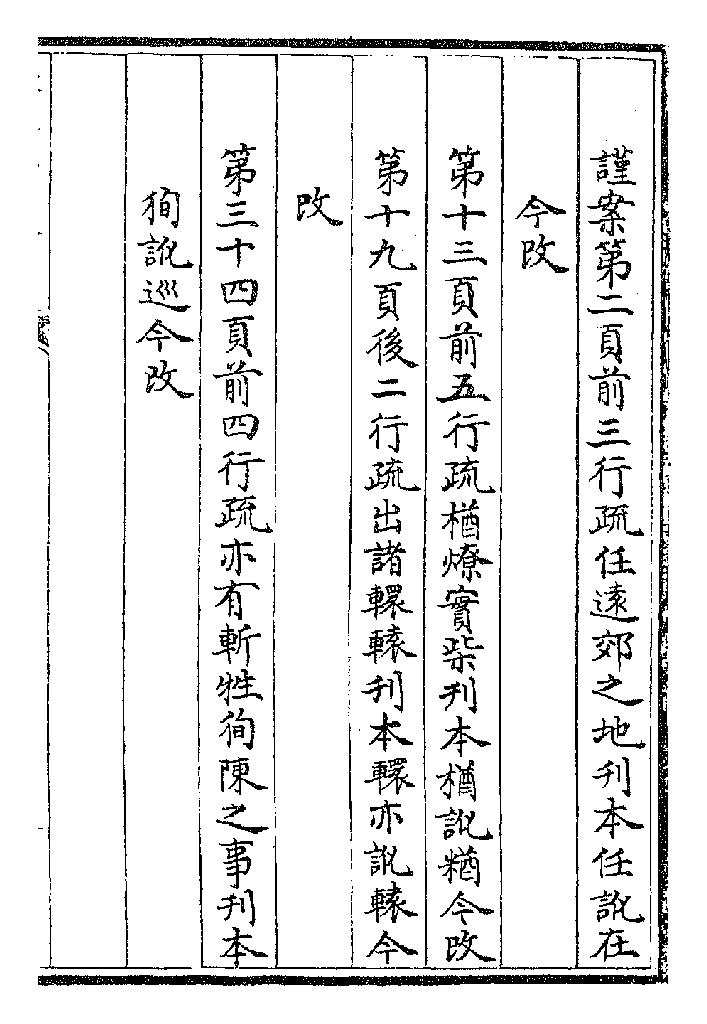 謹案第二頁前三行疏任遠郊之地刋本任訛在
今改
第十三頁前五行疏槱燎實柴刋本槱訛糦今改
第十九頁後二行疏出諸轘轅刋本轘亦訛轅今
改
第三十四頁前四行疏亦有斬牲徇陳之事刋本
狥訛巡今改